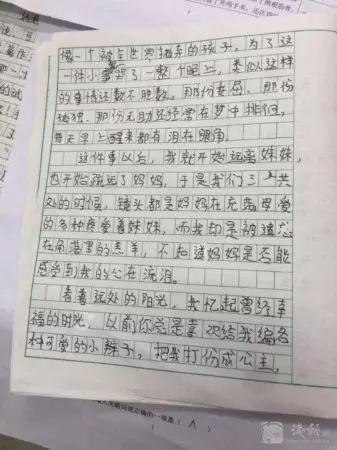 像一个被全世界抛弃的孩子，为了这
一件小事哭了一整个晚上，类似这样
的事情还数不胜数。那份委屈、那份
孤独、那份无助还经常在梦中排徊，
每天早上醒来都有泪在眼角。
这件事以后，我就开始远离妹妹，
也开始疏远了妈妈，于是我们三人共
处的时候，镜头都是妈妈在充满母爱
的各种疼爱着妹妹，而我却是被遗忘
在角落里的羔羊，不知道妈妈是否能
感受到我的心在流泪。
看着远处的阳光，我忆起曾经幸
福的时光，以前你总是喜欢给我编各
种可爱的小辫子，把我打份成公主，
正确的一项是（ A ）